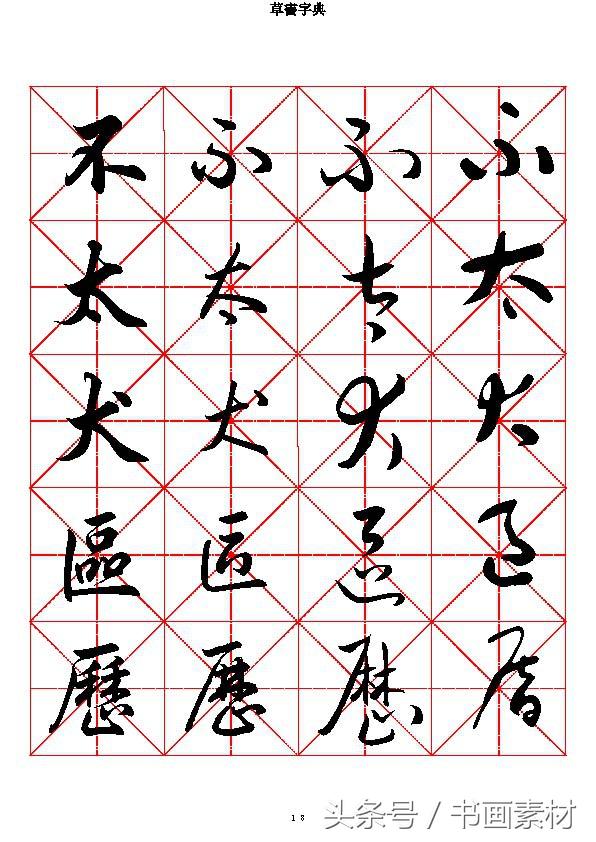 草書字典
不 不 不 不
太 太 太 太
犬 犬 犬 犬
區 區 區 區
歷 歷 歷 歷
18
头条号 / 书画素材